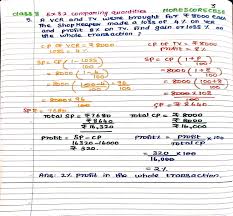 class 8 Ex 8.2 comparing quantities MORESCORECBSE
5. A VCR and TV were brought for ₹ 8000 each
the shopkeeper made a loss of 4% on VCR
and profit 8% on TV. find gain or loss % on
the whole transaction.
CP of VCR = ₹ 8000
loss = 4%
SP = CP (1 - loss%/100)
= 8000 (1 - 4/100)
= 8000 (100-4/100)
= 8000 × 96/100
SP = 7680
CP of TV = ₹ 8000
Profit = 8%
SP = CP (1 + P/100)
= 8000 (1 + 8/100)
= 8000 (100+8/100)
= 8000 × 108/100
= ₹ 8640
Total SP = ₹ 7680
₹ 8640
₹ 16,320
Total CP = ₹ 8000
₹ 8000
₹ 16,000
Profit = SP - CP
16320 - 16000
₹ 320
Profit% = Profit/Total CP × 100
= 320/16,000 × 100
= 2%
Ans: 2% profit in the whole transaction.